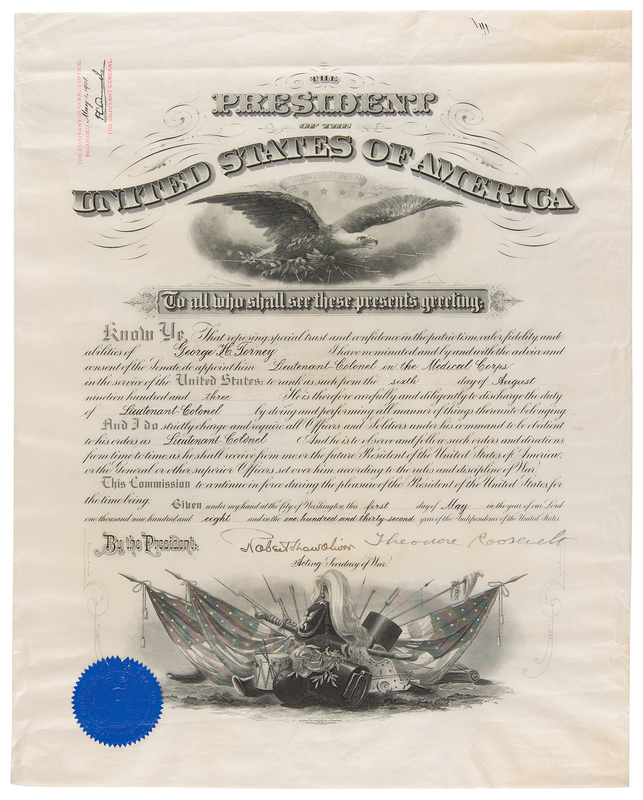 THE ADJUTANT GENERAL'S OFFICE,
RECORDED May 1, 1908
THE ADJUTANT GENERAL.
THE
PRESIDENT
OF THE
UNITED STATES OF AMERICA
To all who shall see these presents greeting:
Know Ye, That reposing special trust and confidence in the patriotism, valor, fidelity, and
abilities of George H. Torney I have nominated, and by and with the advice and
consent of the Senate do appoint him Lieutenant-Colonel in the Medical Corps
in the service of the United States: to rank as such from the sixth day of August
nineteen hundred and three He is therefore carefully and diligently to discharge the duty
of Lieutenant-Colonel by doing and performing all manner of things thereunto belonging
And I do strictly charge and require all Officers and Soldiers under his command to be obedient
to his orders as Lieutenant Colonel And he is to observe and follow such orders and directions
from time to time as he shall receive from me or the future President of the United States of America,
or the General or other superior Officers set over him, according to the rules and discipline of War.
This Commission to continue in force during the pleasure of the President of the United States for
the time being.
Given under my hand at the City of Washington, this first day of May in the year of our Lord
one thousand nine hundred and eight and in the one hundred and thirty-second year of the Independence of the United States.
By the President:
Robert Shaw Oliver Theodore Roosevelt
Acting Secretary of War.